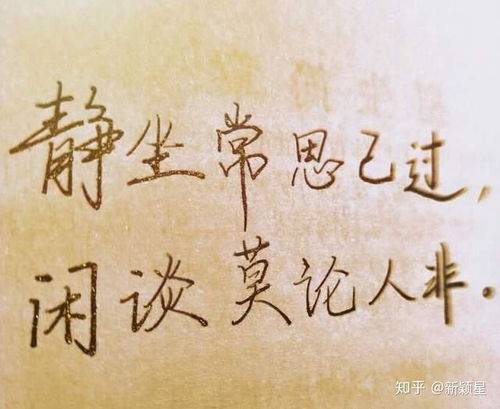 静坐常思己过，
闲谈莫论人非。
知乎 @新颖星